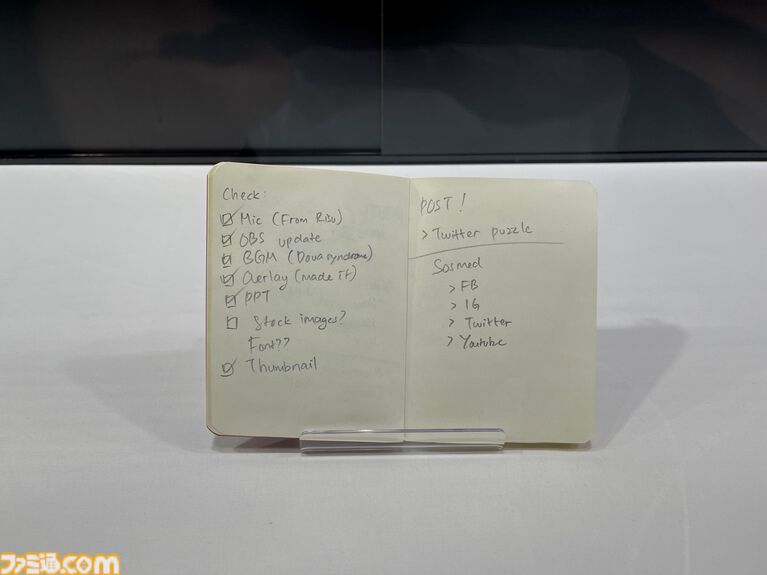 Check:
☑ Mic (From Risu)
☑ OBS update
☑ BGM (Dova syndrome)
☑ Overlay (made it)
☑ PPT
☐ Stock images?
Font??
☑ Thumbnail
POST!
> Twitter puzzle
Sosmed
> FB
> IG
> Twitter
> Youtube
ファミ通.com